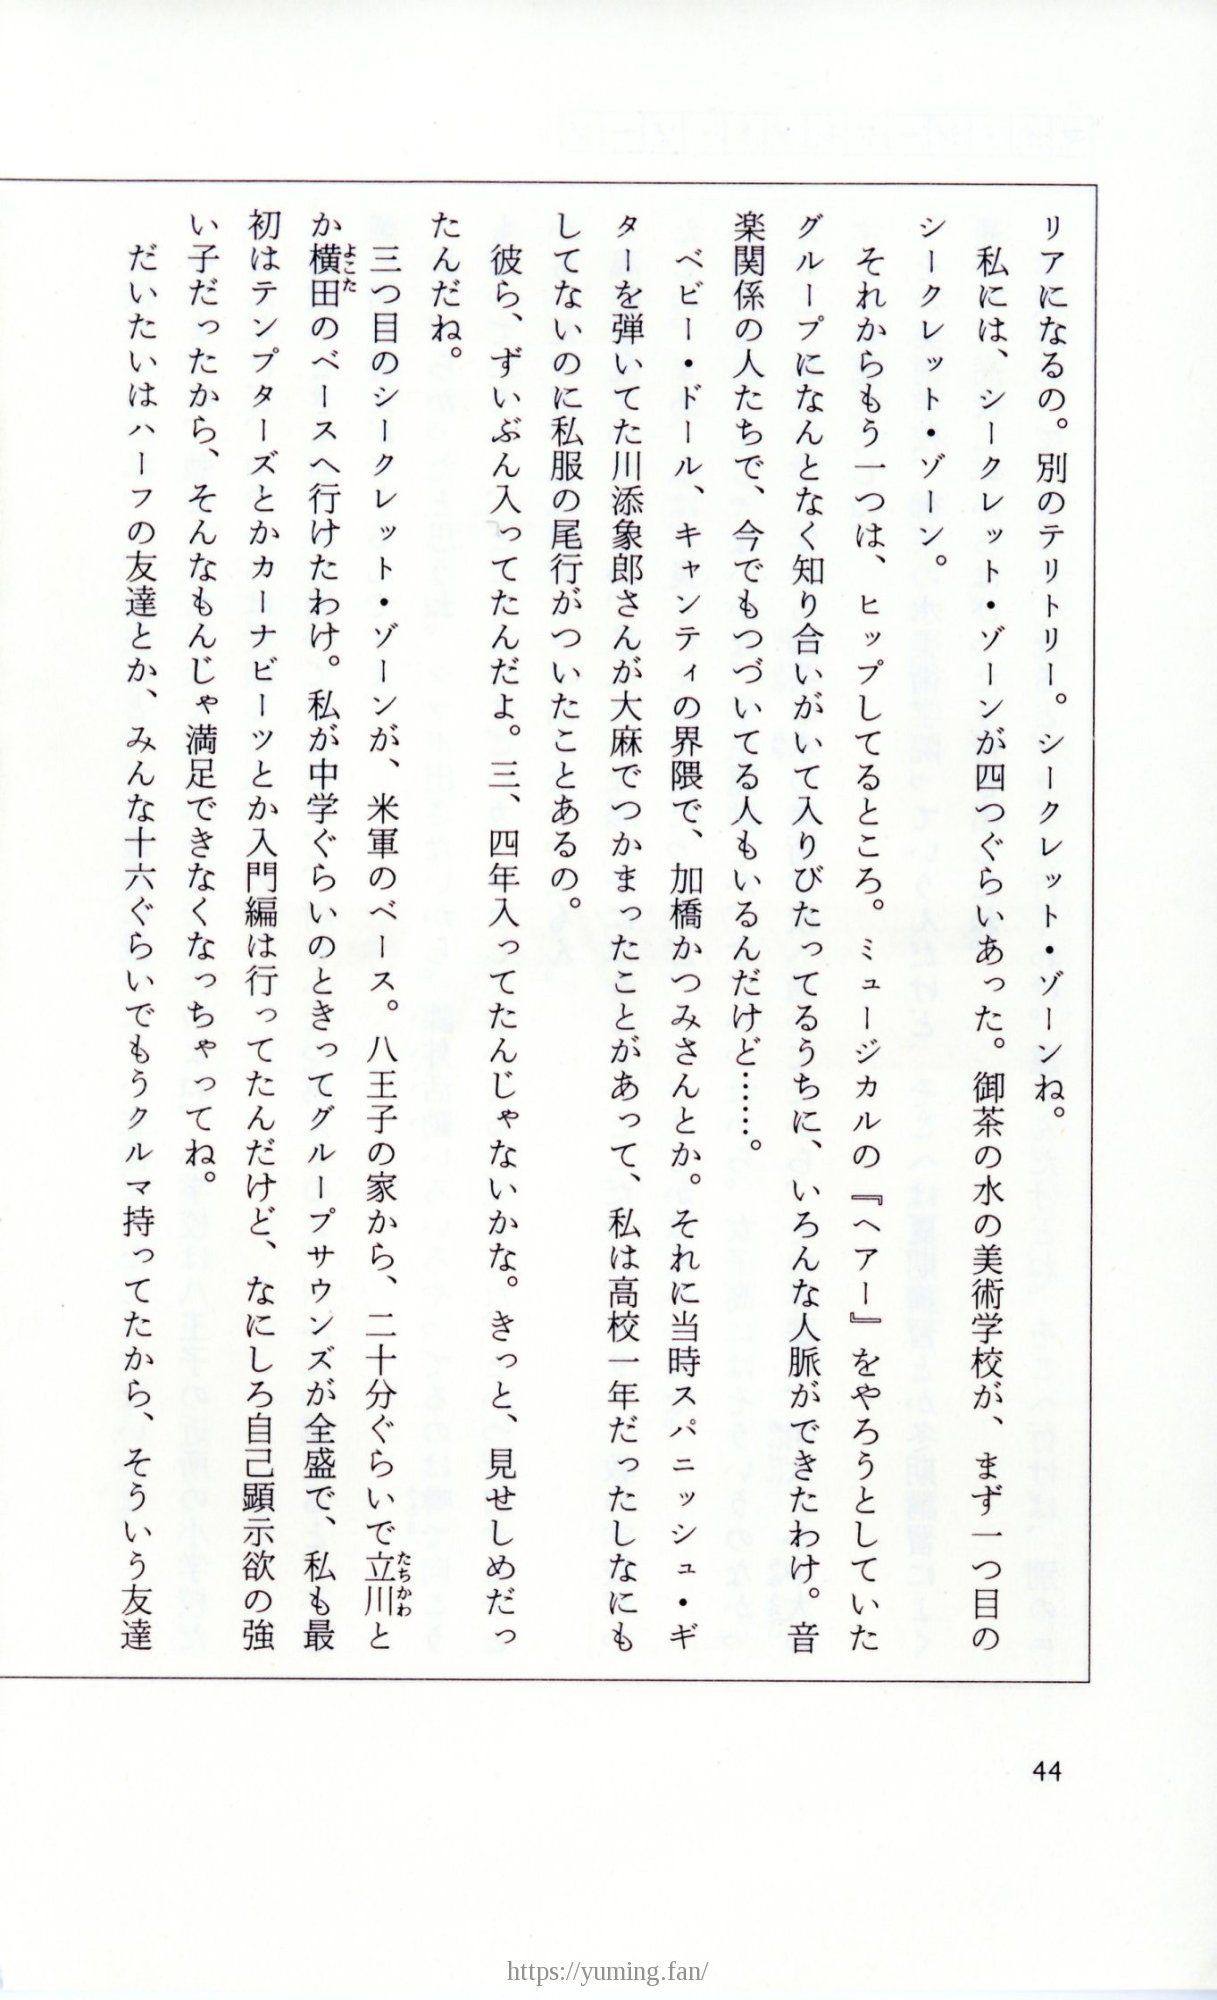 リアになるの。別のテリトリー。シークレット・ゾーンね。
　私には、シークレット・ゾーンが四つぐらいあった。御茶の水の美術学校が、まず一つ目の
シークレット・ゾーン。
　それからもう一つは、ヒップしてるところ。ミュージカルの『ヘアー』をやろうとしていた
グループになんとなく知り合いがいて入りびたってるうちに、いろんな人脈ができたわけ。音
楽関係の人たちで、今でもつづいてる人もいるんだけど……。
　ベビー・ドール、キャンティの界隈で、加橋かつみさんとか。それに当時スパニッシュ・ギ
ターを弾いてた川添象郎さんが大麻でつかまったことがあって、私は高校一年だったしなにも
してないのに私服の尾行がついたことあるの。
　彼ら、ずいぶん入ってたんだよ。三、四年入ってたんじゃないかな。きっと、見せしめだっ
たんだね。
　三つ目のシークレット・ゾーンが、米軍のベース。八王子の家から、二十分ぐらいで立川たちかわと
か横田よこたのベースへ行けたわけ。私が中学ぐらいのときってグループサウンズが全盛で、私も最
初はテンプターズとかカーナビーツとか入門編は行ってたんだけど、なにしろ自己顕示欲の強
い子だったから、そんなもんじゃ満足できなくなっちゃってね。
　だいたいはハーフの友達とか、みんな十六ぐらいでもうクルマ持ってたから、そういう友達
44
https://yuming.fan/